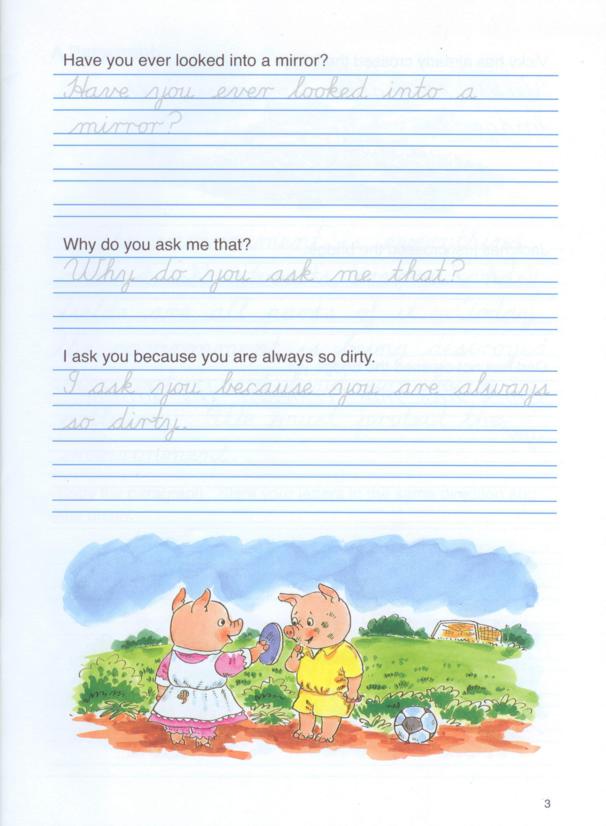 Have you ever looked into a mirror?
Have you ever looked into a
mirror?
Why do you ask me that?
Why do you ask me that?
I ask you because you are always so dirty.
I ask you because you are always
so dirty.
3